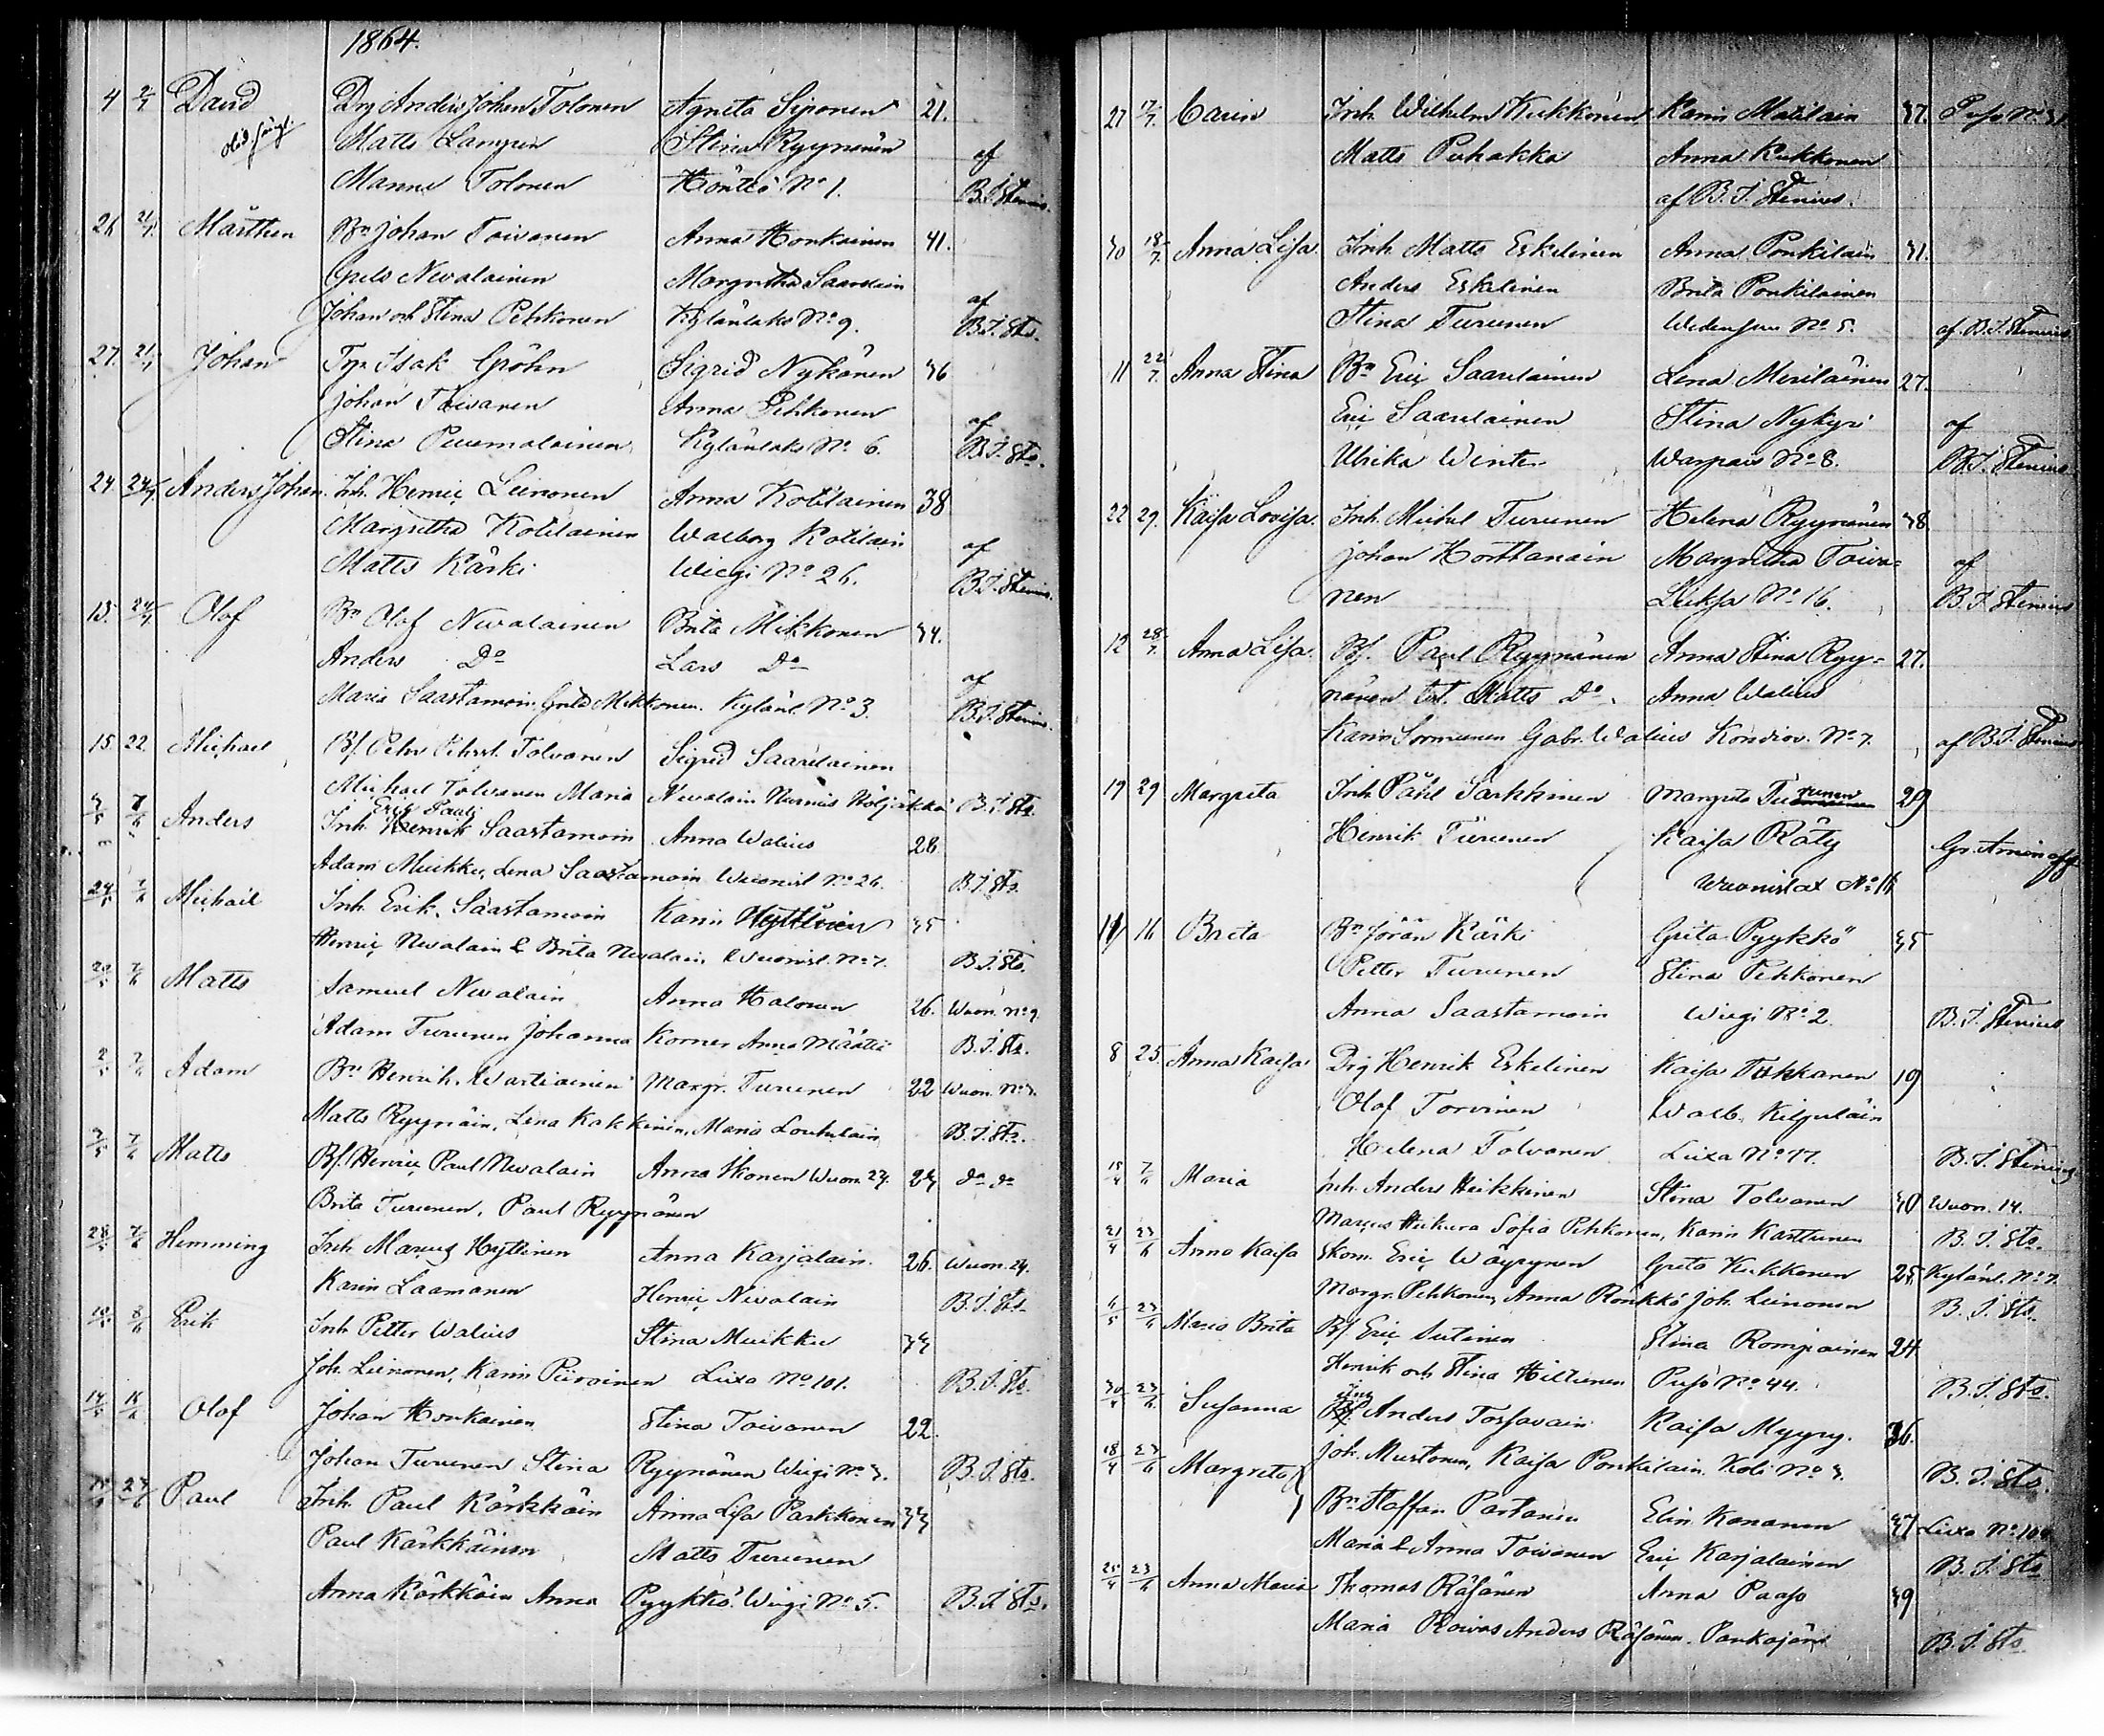 1864.
4 2/7 David Drg Anders Johan Tolonen Agneta Siponen 21.
Matts Stina Ryynänen af
Manne Tolonen Höttö No 1. B.J. Stenius.
26 21/7. Mårthen Bn Johan Toivanen Anna Honkainen 41.
Nevalainen Margretha Saarelain af
Johan och Stina Pehkonen Kylänlaks No 9. B.J. Sts.
27. 21/7 Johan Isak Gröhn Sigrid Nykänen 36
Johan Toivanen Anna Pehkonen af
Stina Kylänlaks No 6. B.J. Sts.
24. 24/7 Anders Johan. Inh. Henric Leinonen Anna Kotilainen 38
Margretha Kotilainen Walborg Kotilain af
Matts Kärki Wiegi No 26. B.J. Stenius.
15. 24/7 Olof Bn Olof Nevalainen Brita Mikkonen 34.
Anders Do Lars Do af
Maria Saastamoin. Mikkonen. Kylänl. No 3. B.J. Stenius.
15 22 Michael Bf. Pehr Tolvanen Sigrid Saarelainen
Michael Tolvanen Maria Nevalain Nurmis Höljäkkä B.J. Sts.
Eric Pauli
3/5 7/6 Anders Inh. Henrik Saastamoin Anna Walius 28
Adam Muikku, Lena Saastamoin Wuonisl No 26. B.J. Sts.
24/5 7/6 Michael Inh. Erik Saastamoin Karin Hyttinen 35
Henric Nevalain & Brita Nevalain, Wuonisl. No 7. B.J. Sts.
20/5 7/6 Matts Samuel Nevalain Anna Halonen 26. Wuon. No 9
Adam Turunen Johanna Korner Anna Määttä B.J. Sts.
2/5 7/6 Adam Bn Henrik Wartiainen Margr. Turunen 22 Wuon. No 3.
Matts Ryynäin, Lena Kakkinen, Maria Louhelain B.J. Sts.
3/5 7/6 Matts Bf. Henric Paul Nevalain Anna Ikonen Wuon 27. 23 do do
Brita Turunen, Paul Ryynänen
28/5 7/6 Hemming Inh Marcus Hyttinen Anna Karjalain. 26. Wuon. 24.
Karin Laamanen Henric Nevalain B.J. Sts
10/5 8/6 Erik Inh Petter Walius Stina Muikku 33
Joh. Leinonen, Karin Piiroinen Lixa No 101. B.J. Sts.
14/5 16/6 Olof Johan Honkainen Stina Toivanen 22.
Johan Turunen Stina Ryynänen Wiegi No 3. B.J. Sts.
23/6 Paul Inh. Paul Kärkkäin Anna Lisa Parkkonen 33
Paul Kärkkäinen Matts Turunen
Anna Kärkkäin Anna Pyykkö Wiegi No 5. B.J. Sts.
27 17/7. Carin Inh. Wilhelm Kukkonen Karin Matilain 37. Puso No 31
Matts Puhakka Anna Kukkonen
af B.J. Stenius.
30 18/7. Anna Lisa. Inh. Matts Eskelinen Anna Ponkilain 31.
Anders Eskelinen Brita Ponkilainen
Stina Turunen No 5. af B.J. Stenius
11 22/7. Anna Stina Bn Eric Saarelainen Lena Meriläinen 27.
Eric Saarelainen Stina Nykyri af
Ulrika Winter Warpais No 8. B.J. Stenius
22 29. Kaisa Lovisa. Inh. Michel Turunen Helena Ryynänen 38
Johan Horttanain Margretha Toiva= af
nen Lieksa No 16. B.J. Stenius
12 28/7. Anna Lisa. Bf. Paul Ryynänen Anna Stina Ryy= 27.
nänen tst. Matts Do. Anna Walius
Karin Sormunen Gabr. Walius Kondiov. No 7. af B.J. Stenius
19 29 Margreta Inh Påhl Sarkkinen Margreta Turunen 29
Henrik Turunen Kaisa Räty Gr. Aminoff
Wuonislax No 16
14 16 Breta Bn Jöran Kärki Greta Pyykkö 35
Petter Turunen Stina Pehkonen
Anna Saastamoin Wiegi No 2. B.J. Stenius
8 25. Anna Kaisa Drg Henrik Eskelinen Kaisa Tuhkanen 19
Olof Torvinen Walb. Kilpeläin
Helena Tolvanen Lixa No 17. B.J. Stenius
15/4 7/6 Maria Inh. Anders Heikkinen Stina Tolvanen 30 Wuon. 14.
Marcus Hiekura Sofia Pehkonen, Karin Karttunen B.J. Sts.
21/4 23/6 Anna Kaisa Skom. Eric Wäyrynen Greta Kukkonen 25. Kylänl. No 7.
Margr. Pehkonen, Anna Rönkkö Joh. Leinonen B.J. Sts.
6/5 23/6 Maria Brita Bf. Eric Sutinen Stina Rompainen 24
Henrik och Stina Hiltunen Puso No 44. B.J. Sts.
30/4 23/6 Susanna Inh Anders Torsavain Kaisa Myyry. 36.
Joh. Mustonen, Kaisa Ponkilain. Koli No 3. B.J. Sts.
18/4 23/6 Margreta Bn Staffan Partanen Elin Kananen 37 Lixa No 104
Maria & Anna Toivanen Eric Karjalainen B.J. Sts
25/4 23/6 Anna Maria Thomas Räsänen Anna Paaso 39
Maria Roivas Anders Räsänen. Pankajärvi B.J. Sts